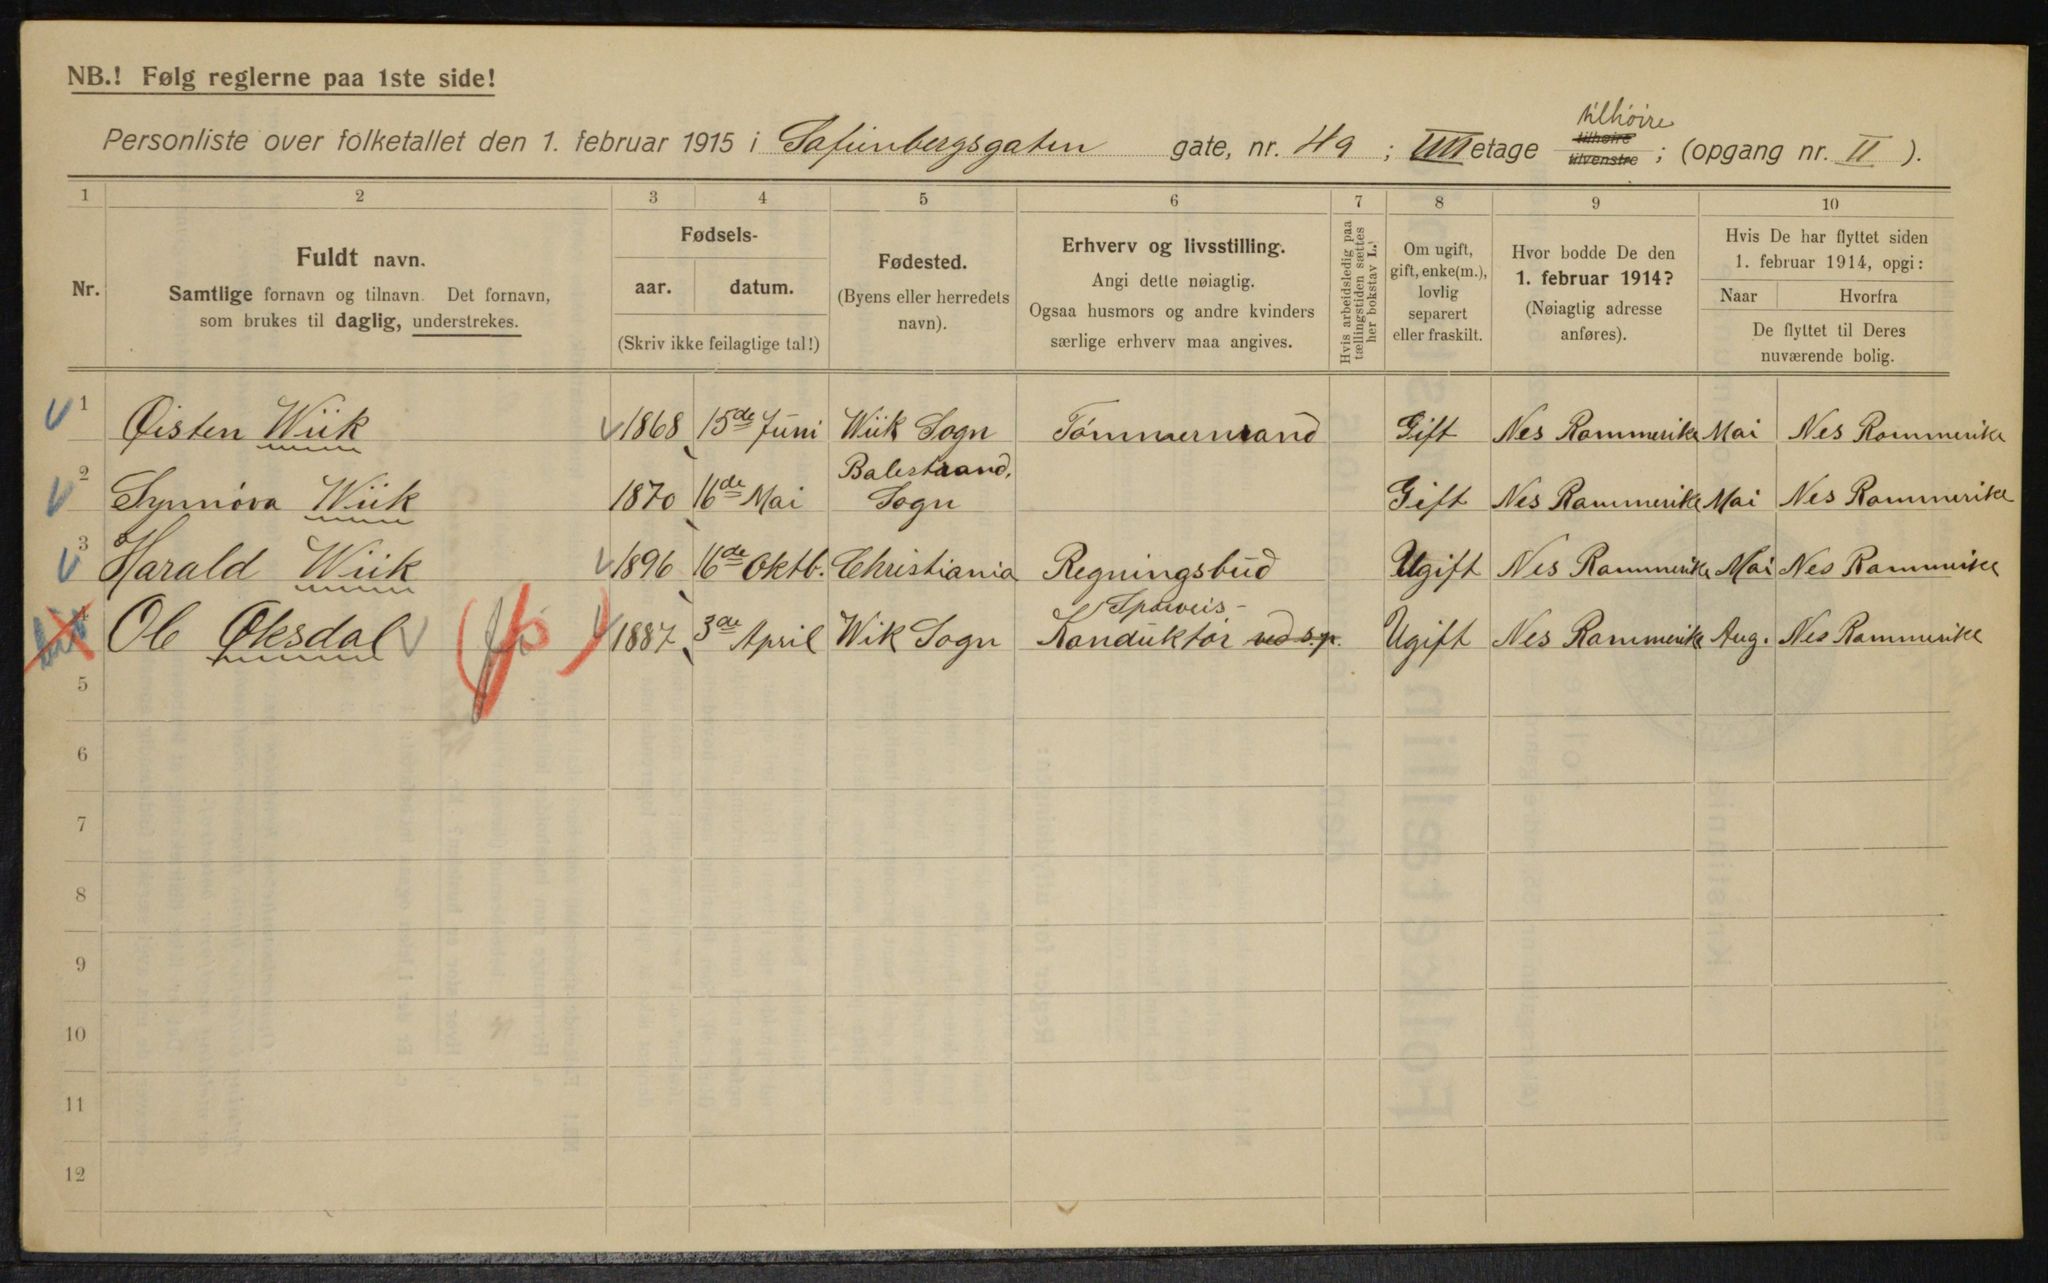 NB.! Følg reglerne paa 1ste side!
tilhöire
Personliste over folketallet den 1. februar 1915 i Sofienbergsgaten gate, nr. 49; IIII etage tilhøire tilvenstre; (opgang nr. II).
1 2 3 4 5 6 7 8 9 10
Nr.
Fuldt navn.
Samtlige fornavn og tilnavn. Det fornavn,
som brukes til daglig, understrekes.
Fødsels-
aar. datum.
(Skriv ikke feilagtige tal!)
Fødested.
(Byens eller herredets
navn).
Erhverv og livsstilling.
Angi dette nøiagtig.
Ogsaa husmors og andre kvinders
særlige erhverv maa angives.
Hvis arbeidsledig paa
tællingstiden sættes
her bokstav L.)
Om ugift,
gift, enke(m.),
lovlig
separert
eller fraskilt.
Hvor bodde De den
1. februar 1914?
(Nøiagtig adresse
anføres).
Hvis De har flyttet siden
1. februar 1914, opgi:
Naar Hvorfra
De flyttet til Deres
nuværende bolig.
1 Øisten Wiik 1868 15de Juni Wiik Sogn Tömmermand Gift Nes Rommerike Mai Nes Rommerike
2 Synnöva Wiik 1870 16de Mai Balestrand, Sogn Gift Nes Rommerike Mai Nes Rommerike
3 Harald Wiik 1896 16de Oktb. Christiania Regningsbud Ugift Nes Rommerike Mai Nes Rommerike
4 Ole Oksdal 1887 3de April Wik Sogn Sporveis- Konduktör ved s.p. Ugift Nes Rommerike Aug. Nes Rommerike
5
6
7
8
9
10
11
12